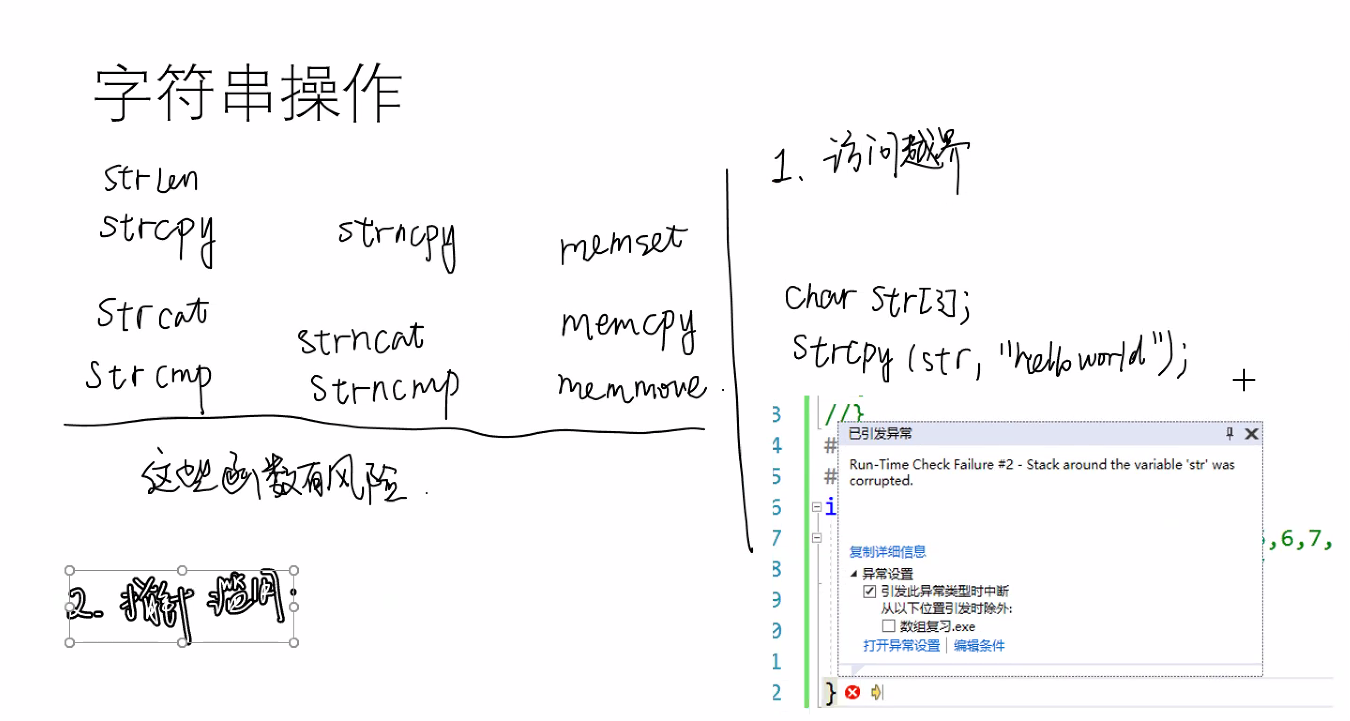 字符串操作
strlen
strcpy strncpy memset
strcat strncat memcpy
strcmp strncmp memmove.
这些函数有风险.
2. 指针 滥用
1. 访问越界
char str[3];
strcpy (str, "hello world");
3 //}
4 #
5 #
6 i
7 ,6,7,
8
9
0
1
2 }
已引发异常
Run-Time Check Failure #2 - Stack around the variable 'str' was
corrupted.
复制详细信息
异常设置
引发此异常类型时中断
从以下位置引发时除外:
数组复习.exe
打开异常设置 | 编辑条件